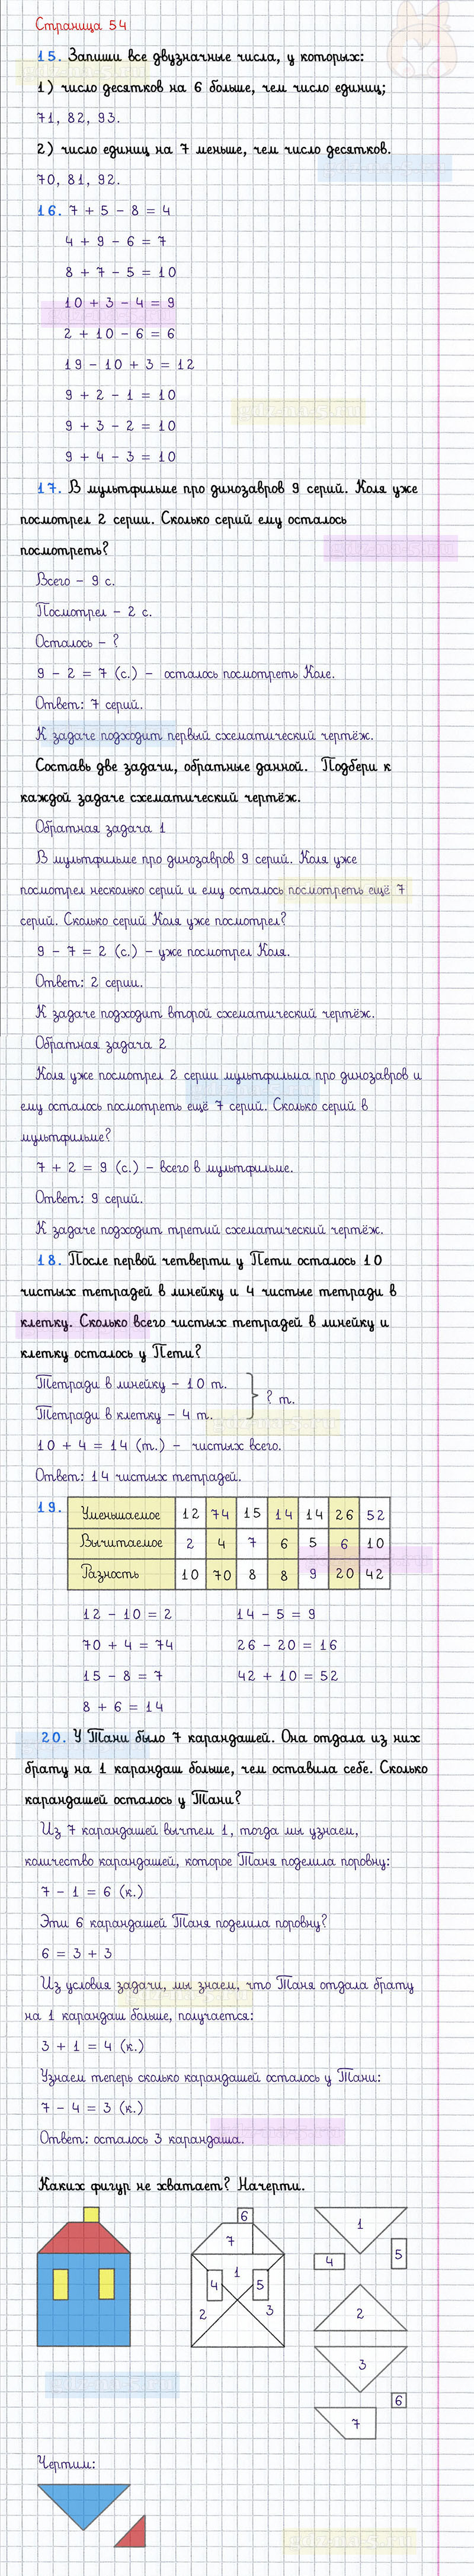 Страница 54
15. Запиши все двузначные числа, у которых:
1) число десятков на 6 больше, чем число единиц;
71, 82, 93.
2) число единиц на 7 меньше, чем число десятков.
70, 81, 92.
16. 7 + 5 - 8 = 4
4 + 9 - 6 = 7
8 + 7 - 5 = 10
10 + 3 - 4 = 9
2 + 10 - 6 = 6
19 - 10 + 3 = 12
9 + 2 - 1 = 10
9 + 3 - 2 = 10
9 + 4 - 3 = 10
17. В мультфильме про динозавров 9 серий. Коля уже
посмотрел 2 серии. Сколько серий ему осталось
посмотреть?
Всего – 9 с.
Посмотрел – 2 с.
Осталось – ?
9 - 2 = 7 (с.) – осталось посмотреть Коле.
Ответ: 7 серий.
К задаче подходит первый схематический чертёж.
Составь две задачи, обратные данной. Подбери к
каждой задаче схематический чертёж.
Обратная задача 1
В мультфильме про динозавров 9 серий. Коля уже
посмотрел несколько серий и ему осталось посмотреть ещё 7
серий. Сколько серий Коля уже посмотрел?
9 - 7 = 2 (с.) – уже посмотрел Коля.
Ответ: 2 серии.
К задаче подходит второй схематический чертёж.
Обратная задача 2
Коля уже посмотрел 2 серии мультфильма про динозавров и
ему осталось посмотреть ещё 7 серий. Сколько серий в
мультфильме?
7 + 2 = 9 (с.) – всего в мультфильме.
Ответ: 9 серий.
К задаче подходит третий схематический чертёж.
18. После первой четверти у Пети осталось 10
чистых тетрадей в линейку и 4 чистые тетради в
клетку. Сколько всего чистых тетрадей в линейку и
клетку осталось у Пети?
Тетради в линейку – 10 т.
? т.
Тетради в клетку – 4 т.
10 + 4 = 14 (т.) – чистых всего.
Ответ: 14 чистых тетрадей.
19. Уменьшаемое 12 74 15 14 14 26 52
Вычитаемое 2 4 7 6 5 6 10
Разность 10 70 8 8 9 20 42
12 - 10 = 2 14 - 5 = 9
70 + 4 = 74 26 - 20 = 16
15 - 8 = 7 42 + 10 = 52
8 + 6 = 14
20. У Тани было 7 карандашей. Она отдала из них
брату на 1 карандаш больше, чем оставила себе. Сколько
карандашей осталось у Тани?
Из 7 карандашей вычтем 1, тогда мы узнаем,
количество карандашей, которое Таня поделила поровну:
7 - 1 = 6 (к.)
Эти 6 карандашей Таня поделила поровну?
6 = 3 + 3
Из условия задачи, мы знаем, что Таня отдала брату
на 1 карандаш больше, получается:
3 + 1 = 4 (к.)
Узнаем теперь сколько карандашей осталось у Тани:
7 - 4 = 3 (к.)
Ответ: осталось 3 карандаша.
Каких фигур не хватает? Начерти.
6
7
1
4 5
2 3
1
4 5
2
3
6
7
Чертим: